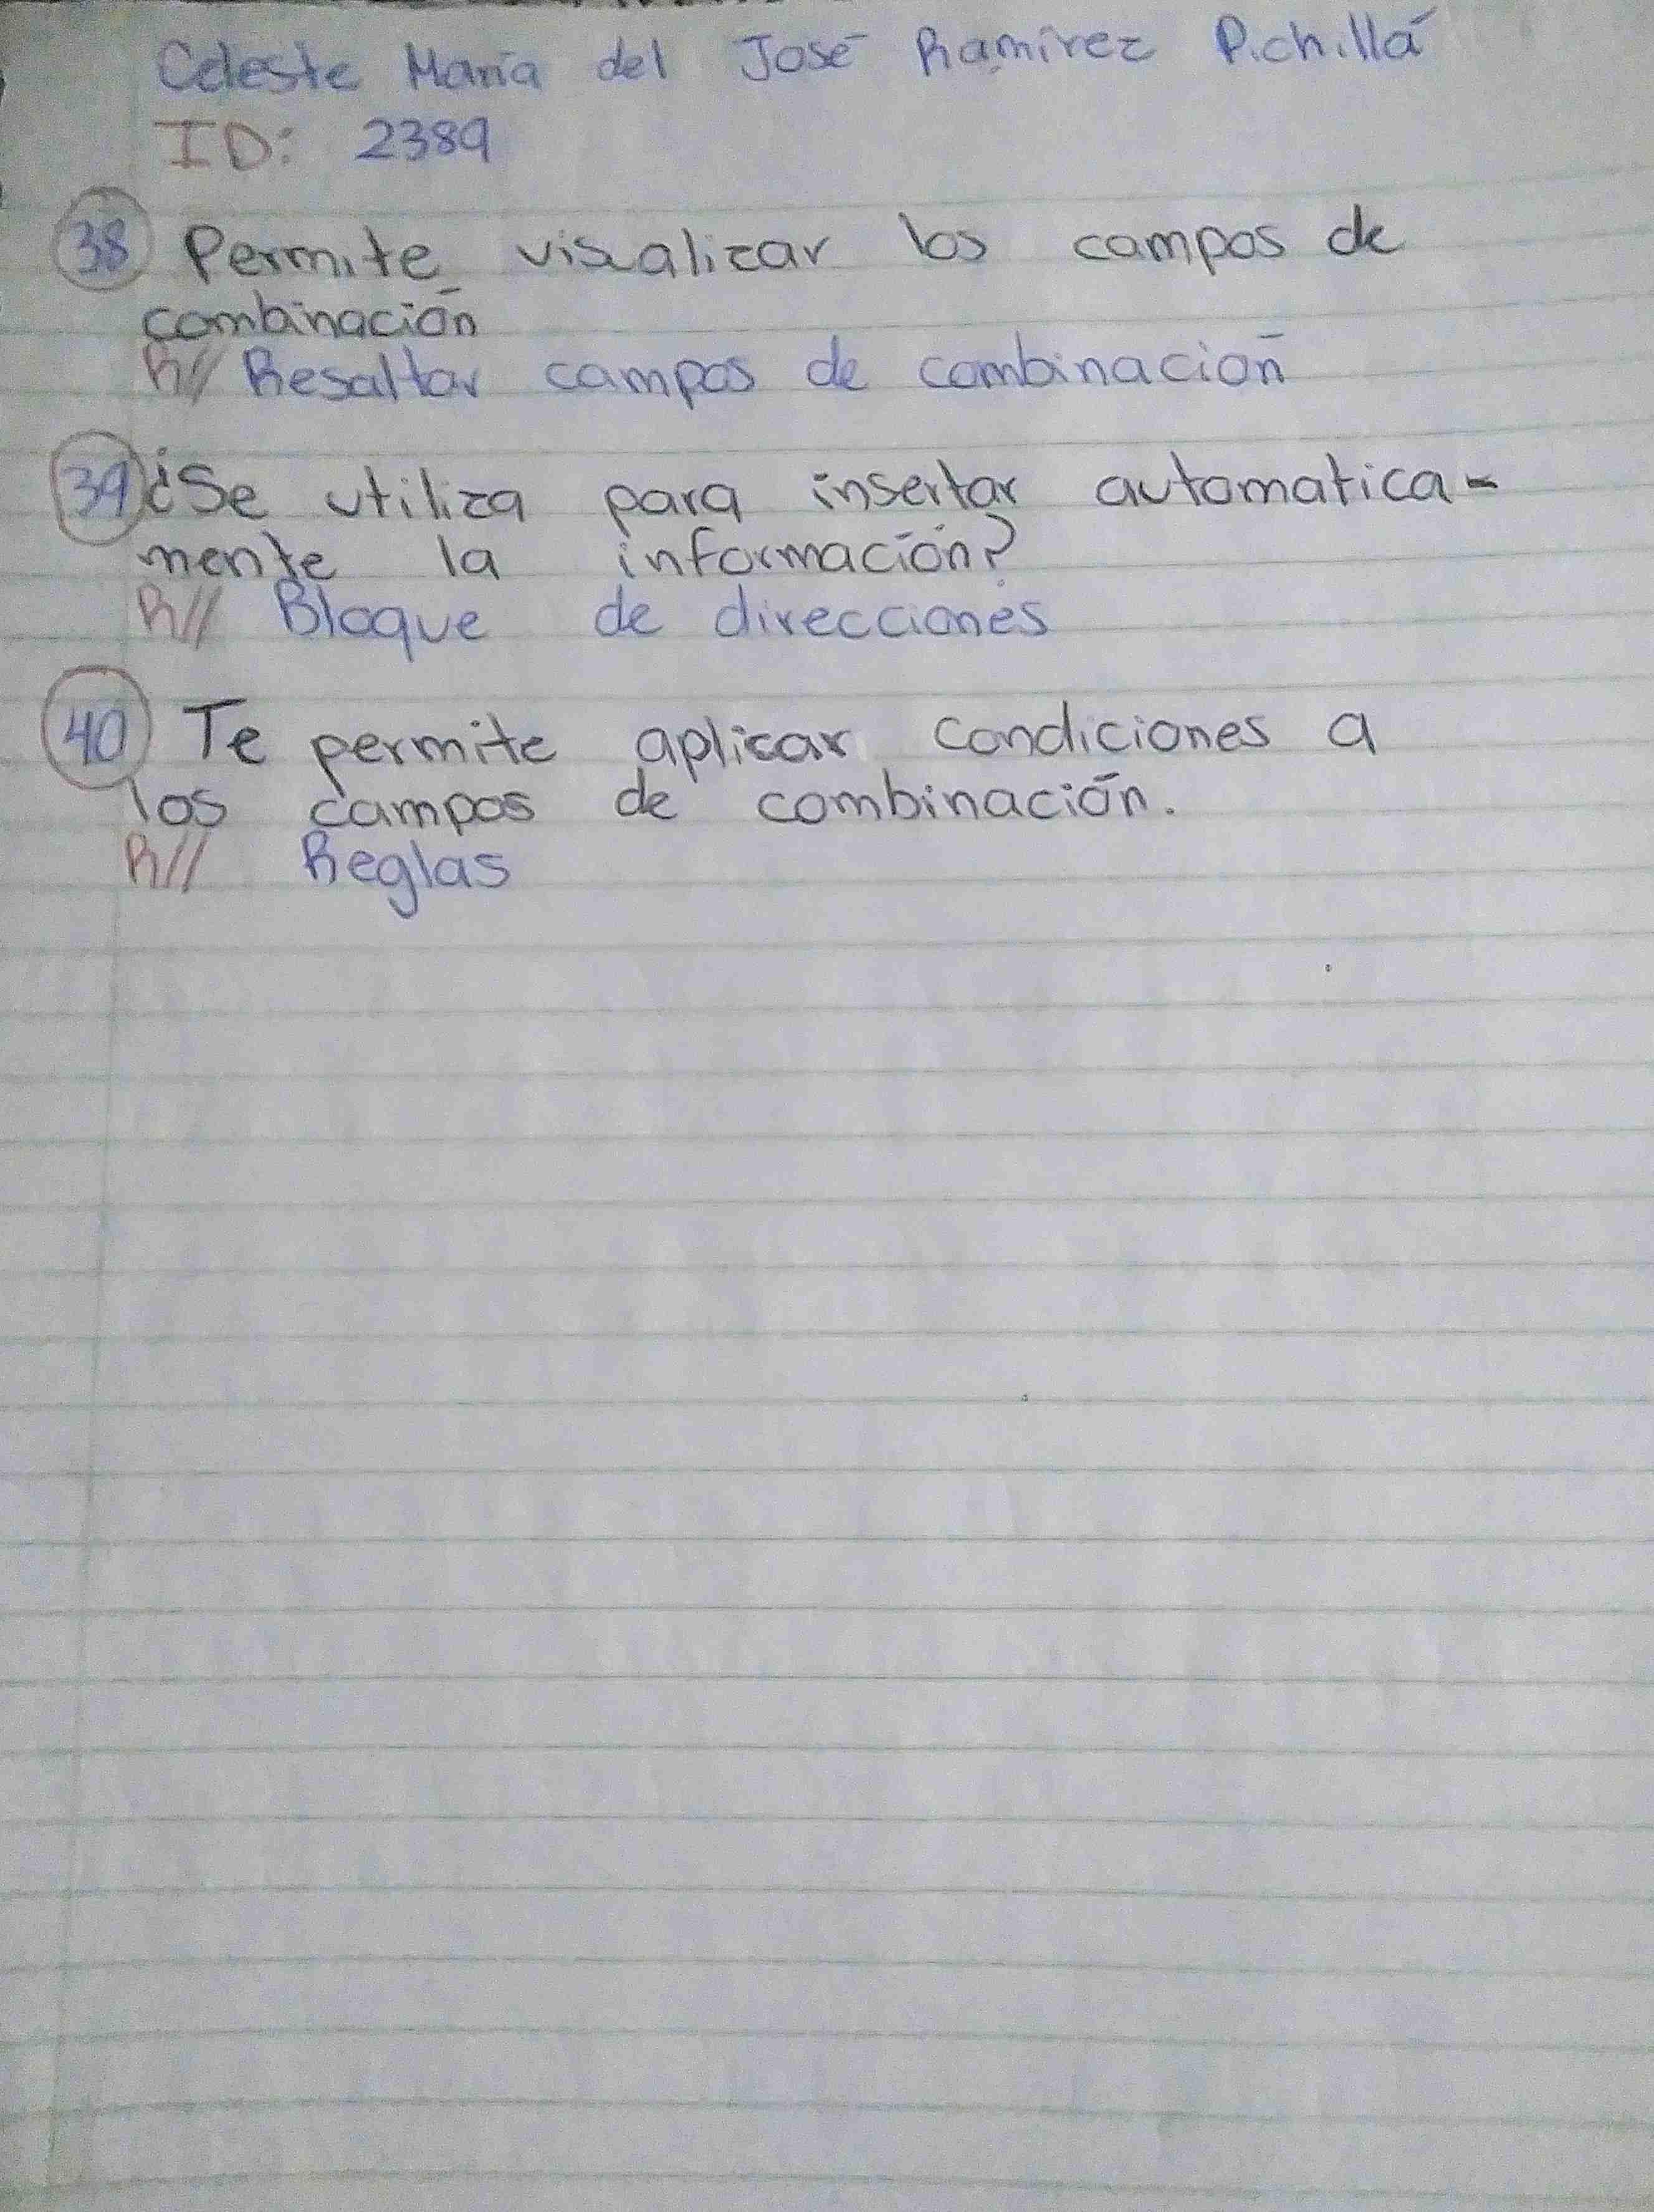 Celeste María del José Ramírez Pichillá
ID: 2389
38 Permite visualizar los campos de
combinación
R// Resaltar campos de combinación
39 ¿Se utiliza para insertar automatica-
mente la información?
R// Bloque de direcciones
40 Te permite aplicar condiciones a
los campos de combinación.
R// Reglas